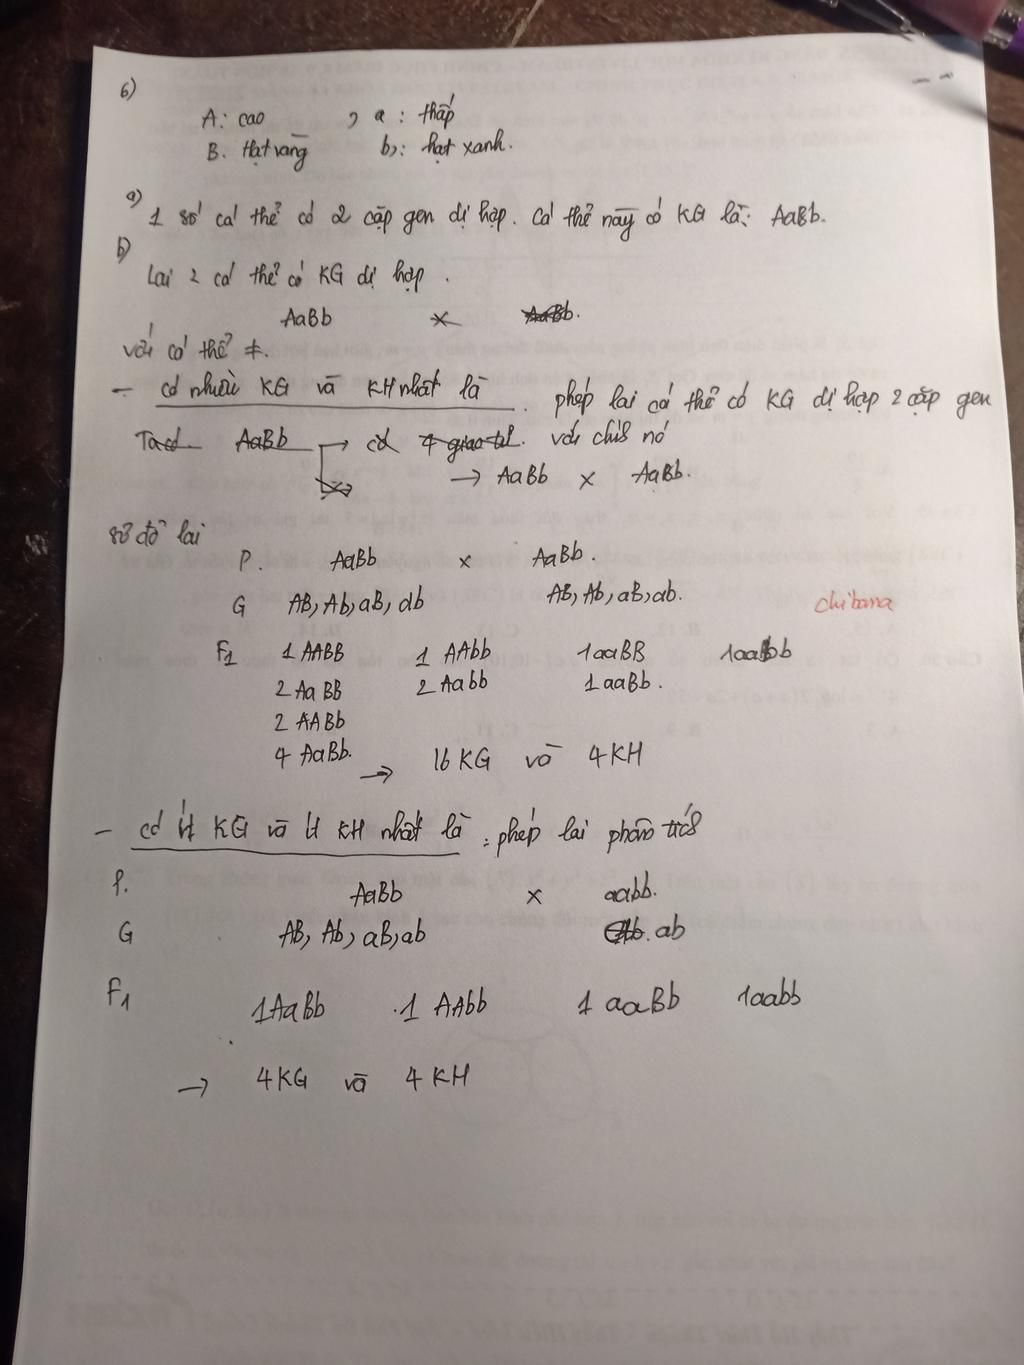 6)
A: cao , a : thấp
B. Hạt vàng b,: hạt xanh.
a) 1 số cá thể có 2 cặp gen dị hợp. Cá thể này có KG là: AaBb.
b) Lai 2 cá thể có KG dị hợp .
AaBb x AaBb.
với cá thể ≠.
- có nhiều KG và KH nhất là . phép lai cá thể có KG dị hợp 2 cặp gen
Ta có AaBb → có 4 giao tử. với chính nó
→ AaBb x AaBb.
sơ đồ lai
P. AaBb x AaBb.
G AB, Ab, aB, ab AB, Ab, aB, ab.
chibana
F1 1 AABB 1 AAbb 1aaBB 1aabb
2 AaBB 2 Aabb 1aaBb.
2 AABb
4 AaBb.
→ 16 KG và 4 KH
- có ít KG và ít KH nhất là : phép lai phân tích
P. AaBb x aabb.
G AB, Ab, aB, ab ab
F1 1AaBb .1 AAbb 1 aaBb 1aabb
→ 4 KG và 4 KH